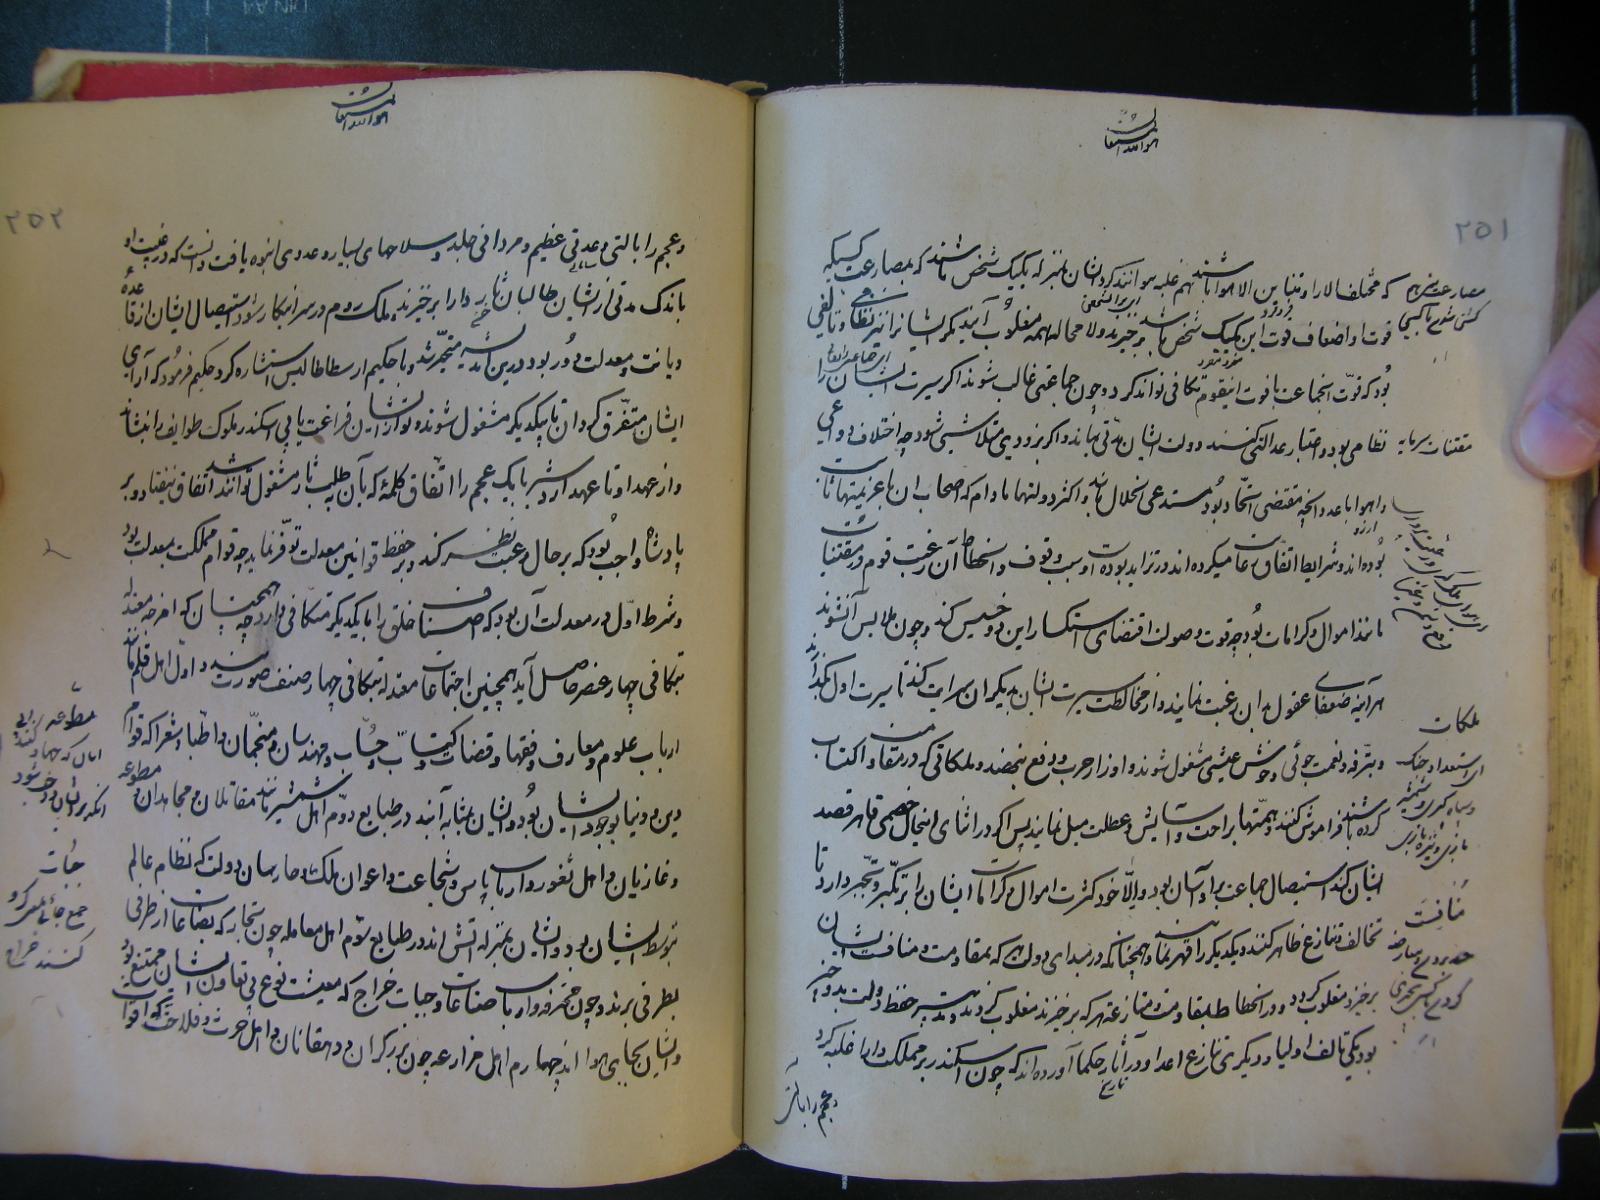 هو الله المستعان
۲۵۱
که مختلف الاراء و متباین الاهوا باشند هم غلبه توانند کرد ایشان بمنزله یکیک شخص باشند که بمصارعت کسیکه
قوت او اضعاف قوت این یکیک شخص باشد برخیزند ولا محاله همه مغلوب آیند مگر ایشانرا نیز نظامی و تالفی
بود که قوّت انجماعت با قوت اینقوم تکافی تواند کرد و چون جماعتی غالب شوند اگر سیرت ایشان را
نظامی بود و اعتبار عدالتی کنند دولت ایشان مدّتی بماند و اگر بزودی متلاشی شود چه اختلاف دواعی
و اهوا با عدم آنچه مقتضی اتحاد بود مستدعی انحلال باشد و اکثر دولتها مادام که اصحاب ان با عزیمتها ثابت
بوده اند و شرایط اتّفاق رعایت میکرده اند در تزاید بوده است و سبب وقوف و انحطاط آن رغبت قوم در مقتنیات
مانند اموال و کرامات بود چه قوت و صولت اقتضای استکثار این دو جنس کند و چون ملابس آنشوند
هر آینه ضعفای عقول بدان رغبت نمایند و از مخالطت سیرت ایشان بدیگران سرایت کند تا سیرت اول بگذارند
و بترفّه و نعمت جوئی و خوش عیشی مشغول شوند و اوزار حرب و دفع بنهند و ملکاتی که در مقاومت اکتساب
کرده باشند فراموش کنند و همّتها براحت و آسایش و عطلت میل نماید پس اگر در اثنای این حال خصمی قاهر قصد
ایشان کند استیصال جماعت برو آسان بود والّا خود کثرت اموال و کرامات ایشان را بر تکبّر و تجبّر دارد تا
تخالف و تنازع ظاهر کنند و یکدیگر را قهر نمایند و همچنانکه در مبدای دولت هر که بمقاومت و منافست ایشان
برخیزد مغلوب گردد و در انحطاط بمقاومت و منازعت هر که برخیزند مغلوب گردند و تدبیر حفظ دولت بدو چیز
بود یکی تالف اولیا و دیگری تنازع اعدا و در آثار حکما آورده اند که چون اسکندر بر مملکت دارا غلبه کرد
تاریخ
و عجم را بالتی
ملکات
منافست
هو الله المستعان
۲۵۲
و عجم را بالتی و عدتی عظیم و مردانی جلد و سلاحهای بسیار و عددی انبوه یافت دانست که در غیبت او
باندک مدتی از ایشان طالبان ثار دارا برخیزند و ملک روم در سر اینکار شود و استیصال ایشان از قاعدهٔ
دیانت و معدلت دور بود درین اندیشه متحیّر شد و با حکیم ارسطاطالیس استشاره کرد حکیم فرمود که آرای
ایشان متفرّق گردان تا بیکدیگر مشغول شوند و تو از ایشان فراغت یابی اسکندر ملوک طوایف را بنشاند
و از عهد او تا عهد اردشیر بابک عجم را اتّفاق کلمهٔ که بآن طلب ثار مشغول توانند شد اتفاق نیفتاد و بر
پادشاه واجب بود که بر حال رعیت نظر کند و بر حفظ قوانین معدلت توفّر نماید چه قوام مملکت بمعدلت بود
و شرط اوّل در معدلت آن بود که اصناف خلق را با یکدیگر متکافی دارد چه همچنان که امزجه معتدله
بتکافی چهار عنصر حاصل آید همچنین اجتماعات معتدله بتکافی چهار صنف صورت بندد اول اهل قلم مانند
ارباب علوم و معارف و فقها و قضات و کتّاب و حسّاب و مهندسان و منجمّان و اطبّا و شعرا که قوام
دین و دنیا بوجود ایشان بود و ایشان بمثابه آبند در طبایع دوّم اهل شمشیر مانند مقاتلان و مجاهدان و مطوعه
و غازیان و اهل ثغور و ارباب باس و شجاعت و اعوان ملک و حارسان دولت که نظام عالم
بتوسط ایشان بود و ایشان بمنزله آتش اند در طبایع سوم اهل معامله چون تجار که بضاعات از طرفی
بطرفی برند و چون محترفه و ارباب صناعات و جبات خراج که معیشت نوع بی تعاون ایشان ممتنع بود
و ایشان بجای هوا اند چهارم اهل مزارعه چون برزگران و دهقانان و اهل حرث و فلاحت که اقوات
مطوعه
جبات
جمع